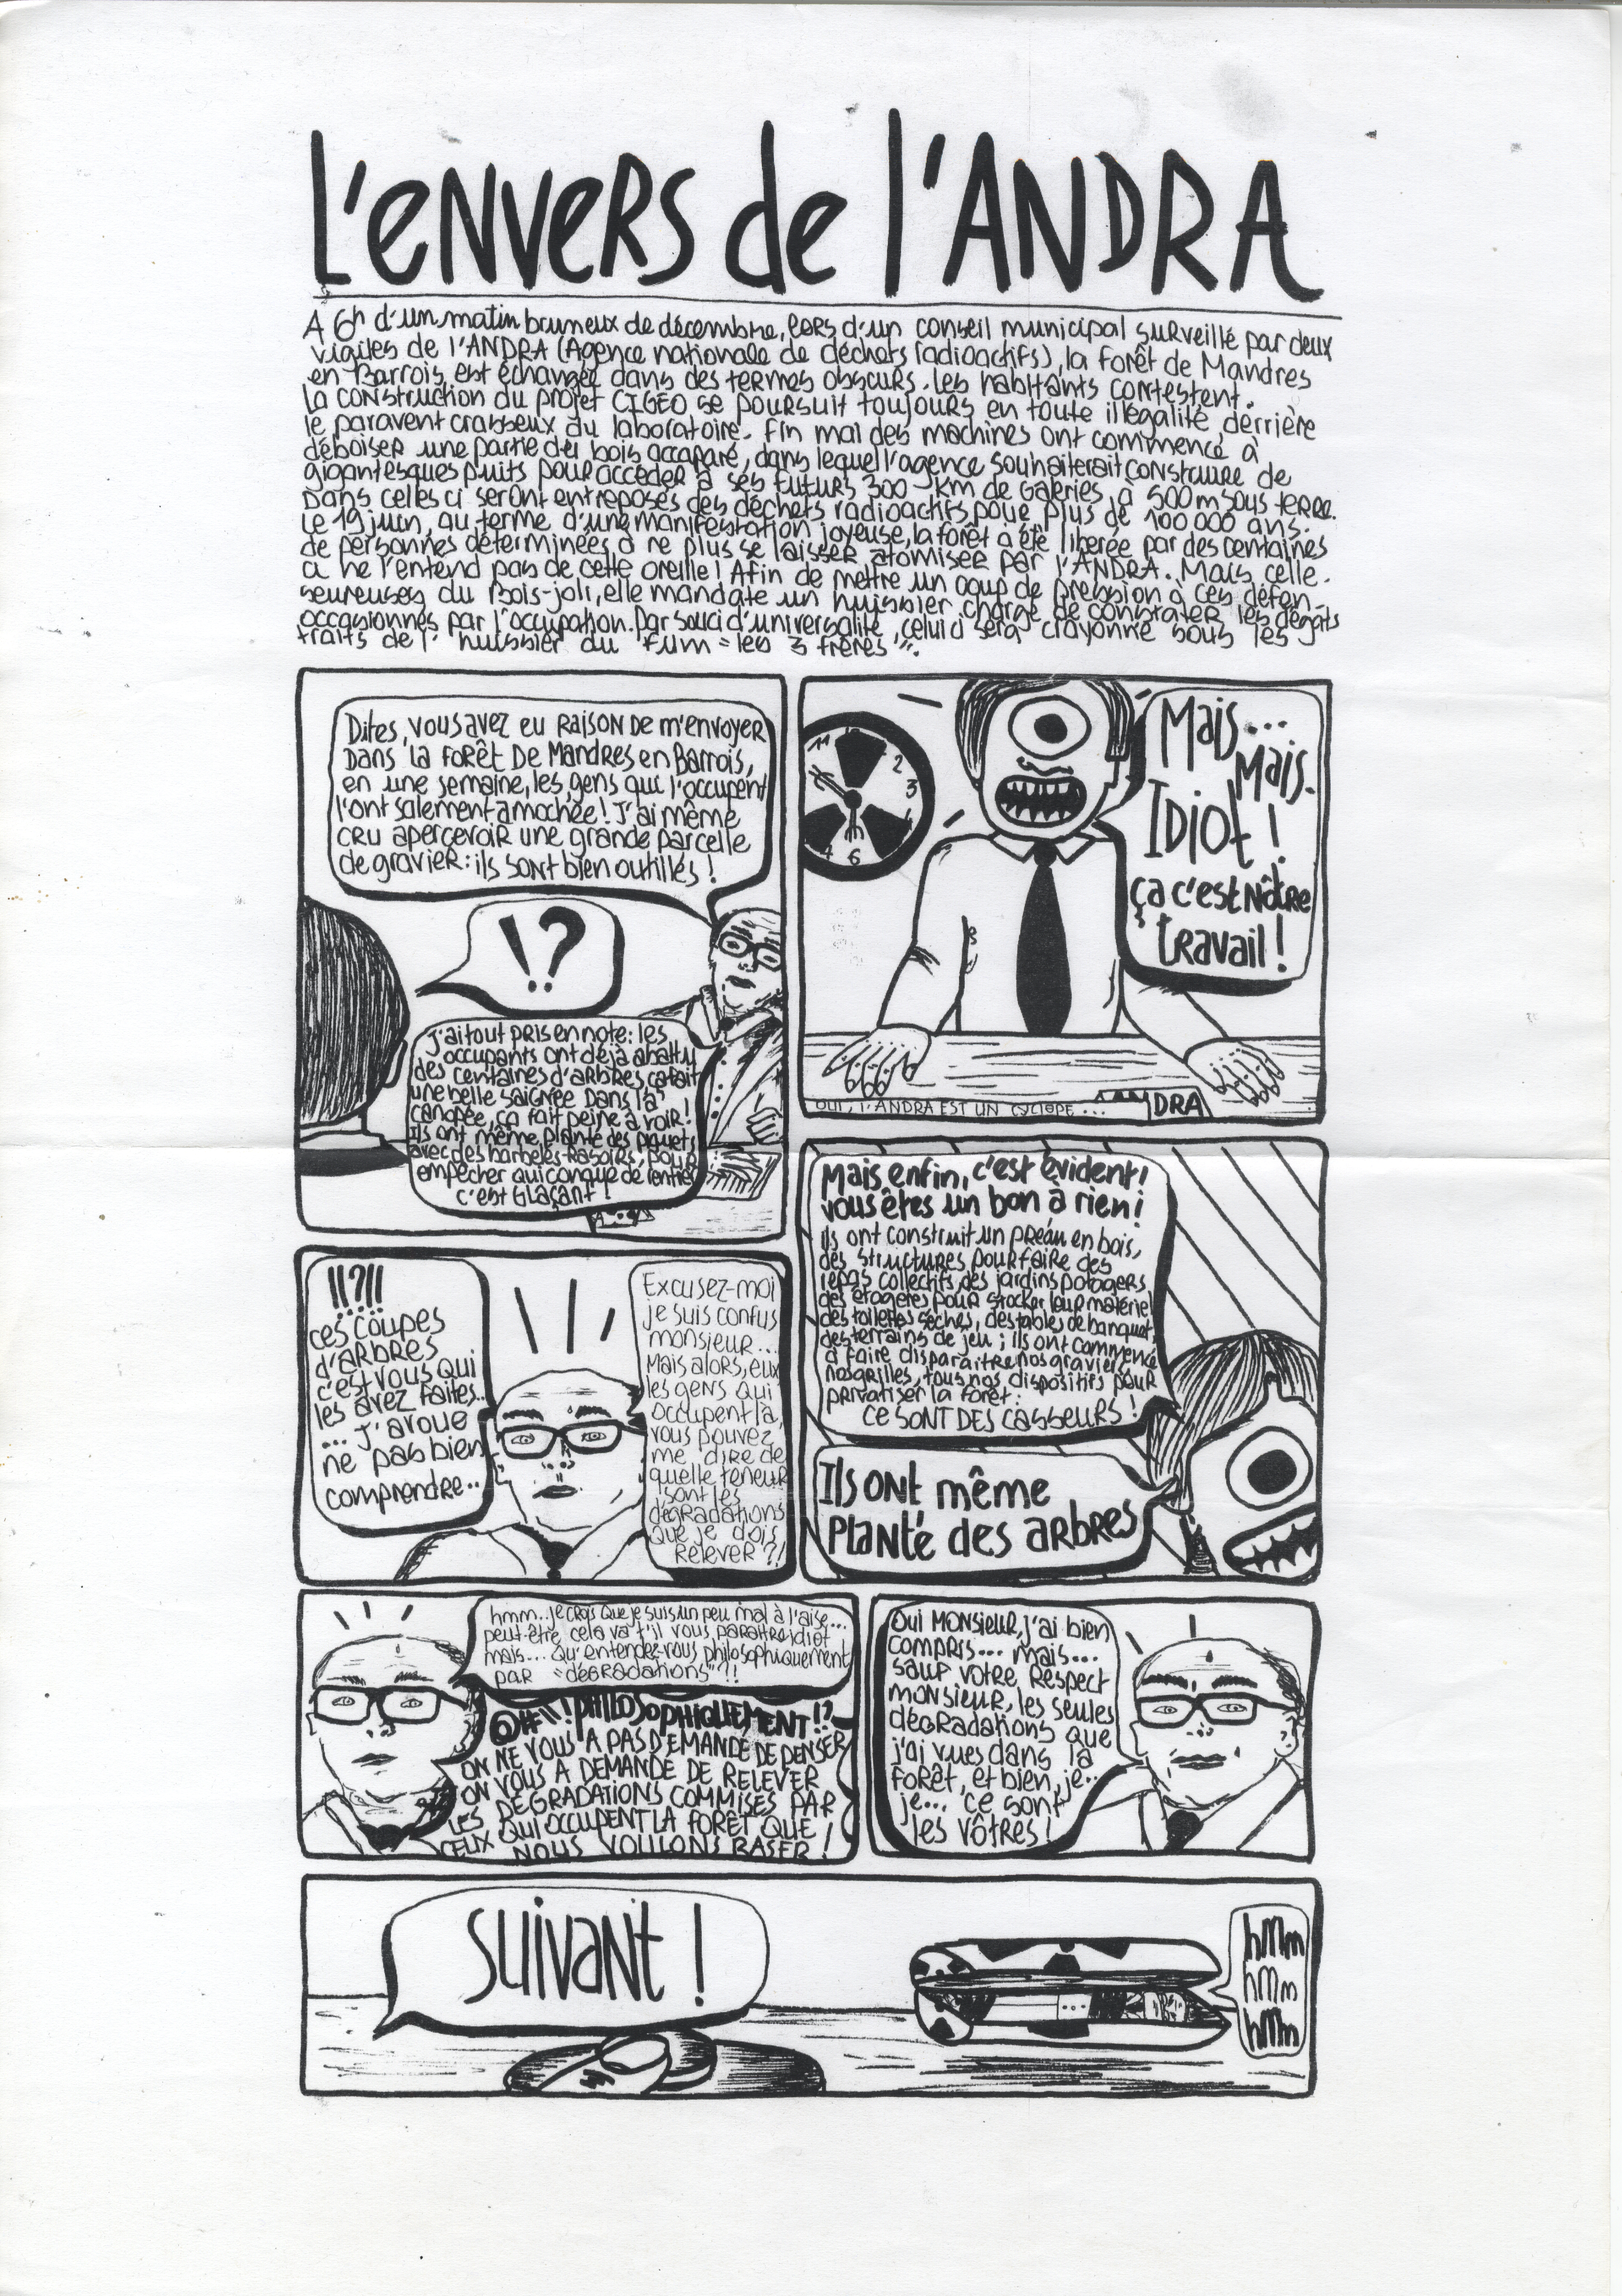 L'ENVERS de l'ANDRA
A 6h d'un matin brumeux de décembre, lors d'un conseil municipal surveillé par deux
vigiles de l'ANDRA (Agence nationale de déchets radioactifs), la forêt de Mandres
en Barrois est échangée dans des termes obscurs. Les habitants contestent.
La construction du projet CIGEO se poursuit toujours en toute illégalité derrière
le paravent crasseux du laboratoire. Fin mai des machines ont commencé à
déboiser une partie du bois accaparé, dans lequel l'agence souhaiterait construire de
gigantesques puits pour accéder à ses futurs 300 km de Galeries, à 500m sous terre.
Dans celles ci seront entreposés des déchets radioactifs pour plus de 100 000 ans.
Le 19 juin, au terme d'une manifestation joyeuse, la forêt à été libérée par des centaines
de personnes déterminées à ne plus se laisser atomiser par l'ANDRA. Mais celle-
ci ne l'entend pas de cette oreille! Afin de mettre un coup de pression à ces défen-
seureuses du Bois-joli, elle mandate un huissier chargé de constater les dégats
occasionnés par l'occupation. Par souci d'universalité, celui ci sera crayonné sous les
traits de l'huissier du film "les 3 frères".
Dites, vous avez eu raison de m'envoyer
dans la forêt de Mandres en Barrois,
en une semaine, les gens qui l'occupent
l'ont salement amochée! J'ai même
cru apercevoir une grande parcelle
de gravier: ils sont bien outillés!
!?
J'ai tout pris en note: les
occupants ont déjà abattu
des centaines d'arbres ça fait
une belle saignée dans la
canopée, ça fait peine à voir!
Ils ont même planté des piquets
avec des barbelés-rasoirs, pour
empêcher quiconque de rentrer
c'est glaçant!
Mais...
Mais..
Idiot!
ça c'est nôtre
travail!
11
2
3
6
OUI, l'ANDRA EST UN CYCLOPE...
ANDRA
!!?!!
ces coupes
d'arbres
c'est vous qui
les avez faites..
... J'avoue
ne pas bien
comprendre..
Excusez-moi
je suis confus
monsieur...
Mais alors, eux
les gens qui
occupent là,
vous pouvez
me dire de
quelle teneur
sont les
dégradations
que je dois
relever?!
Mais enfin, c'est évident!
vous êtes un bon à rien!
Ils ont construit un préau en bois,
des structures pour faire des
repas collectifs, des jardins potagers
des étagères pour stocker leur matériel
des toilettes sèches, des tables de banquet,
des terrains de jeu; ils ont commencé
à faire disparaitre nos graviers,
nos grilles, tous nos dispositifs pour
privatiser la forêt:
CE SONT DES CASSEURS!
Ils ont même
planté des arbres
hmm... je crois que je suis un peu mal à l'aise...
peut-être cela va t'il vous paraitre idiot
mais... qu'entendez-vous philosophiquement
par "dégradations"?!
@#\! PHILOSOPHIQUEMENT!?
ON NE VOUS A PAS DEMANDÉ DE PENSER
ON VOUS A DEMANDÉ DE RELEVER
LES DÉGRADATIONS COMMISES PAR
CEUX QUI OCCUPENT LA FORÊT QUE
NOUS VOULONS RASER!
Oui Monsieur, j'ai bien
compris... mais...
sauf votre respect
monsieur, les seules
dégradations que
j'ai vues dans la
forêt, et bien, je..
je... ce sont
les vôtres!
Suivant!
hmm
hmm
hmm